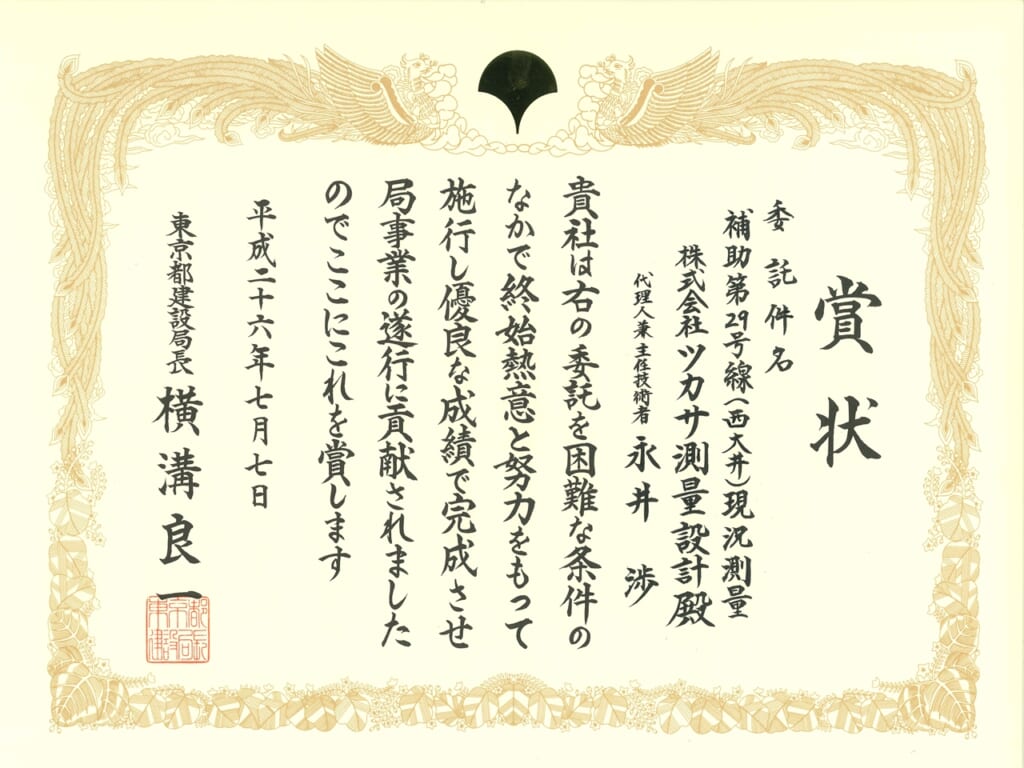 賞状
委託件名
補助第29号線（西大井）現況測量
株式会社ツカサ測量設計殿
代理人兼主任技術者 永井 渉
貴社は右の委託を困難な条件の
なかで終始熱意と努力をもって
施行し優良な成績で完成させ
局事業の遂行に貢献されました
のでここにこれを賞します
平成二十六年七月七日
東京都建設局長 横溝良一
東京都
建設局長